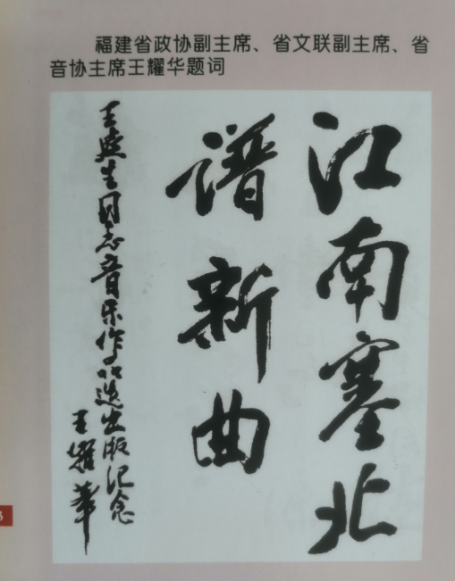 福建省政协副主席、省文联副主席、省
音协主席王耀华题词
江南塞北
谱新曲
王兴生同志音乐作品选出版纪念
王耀华